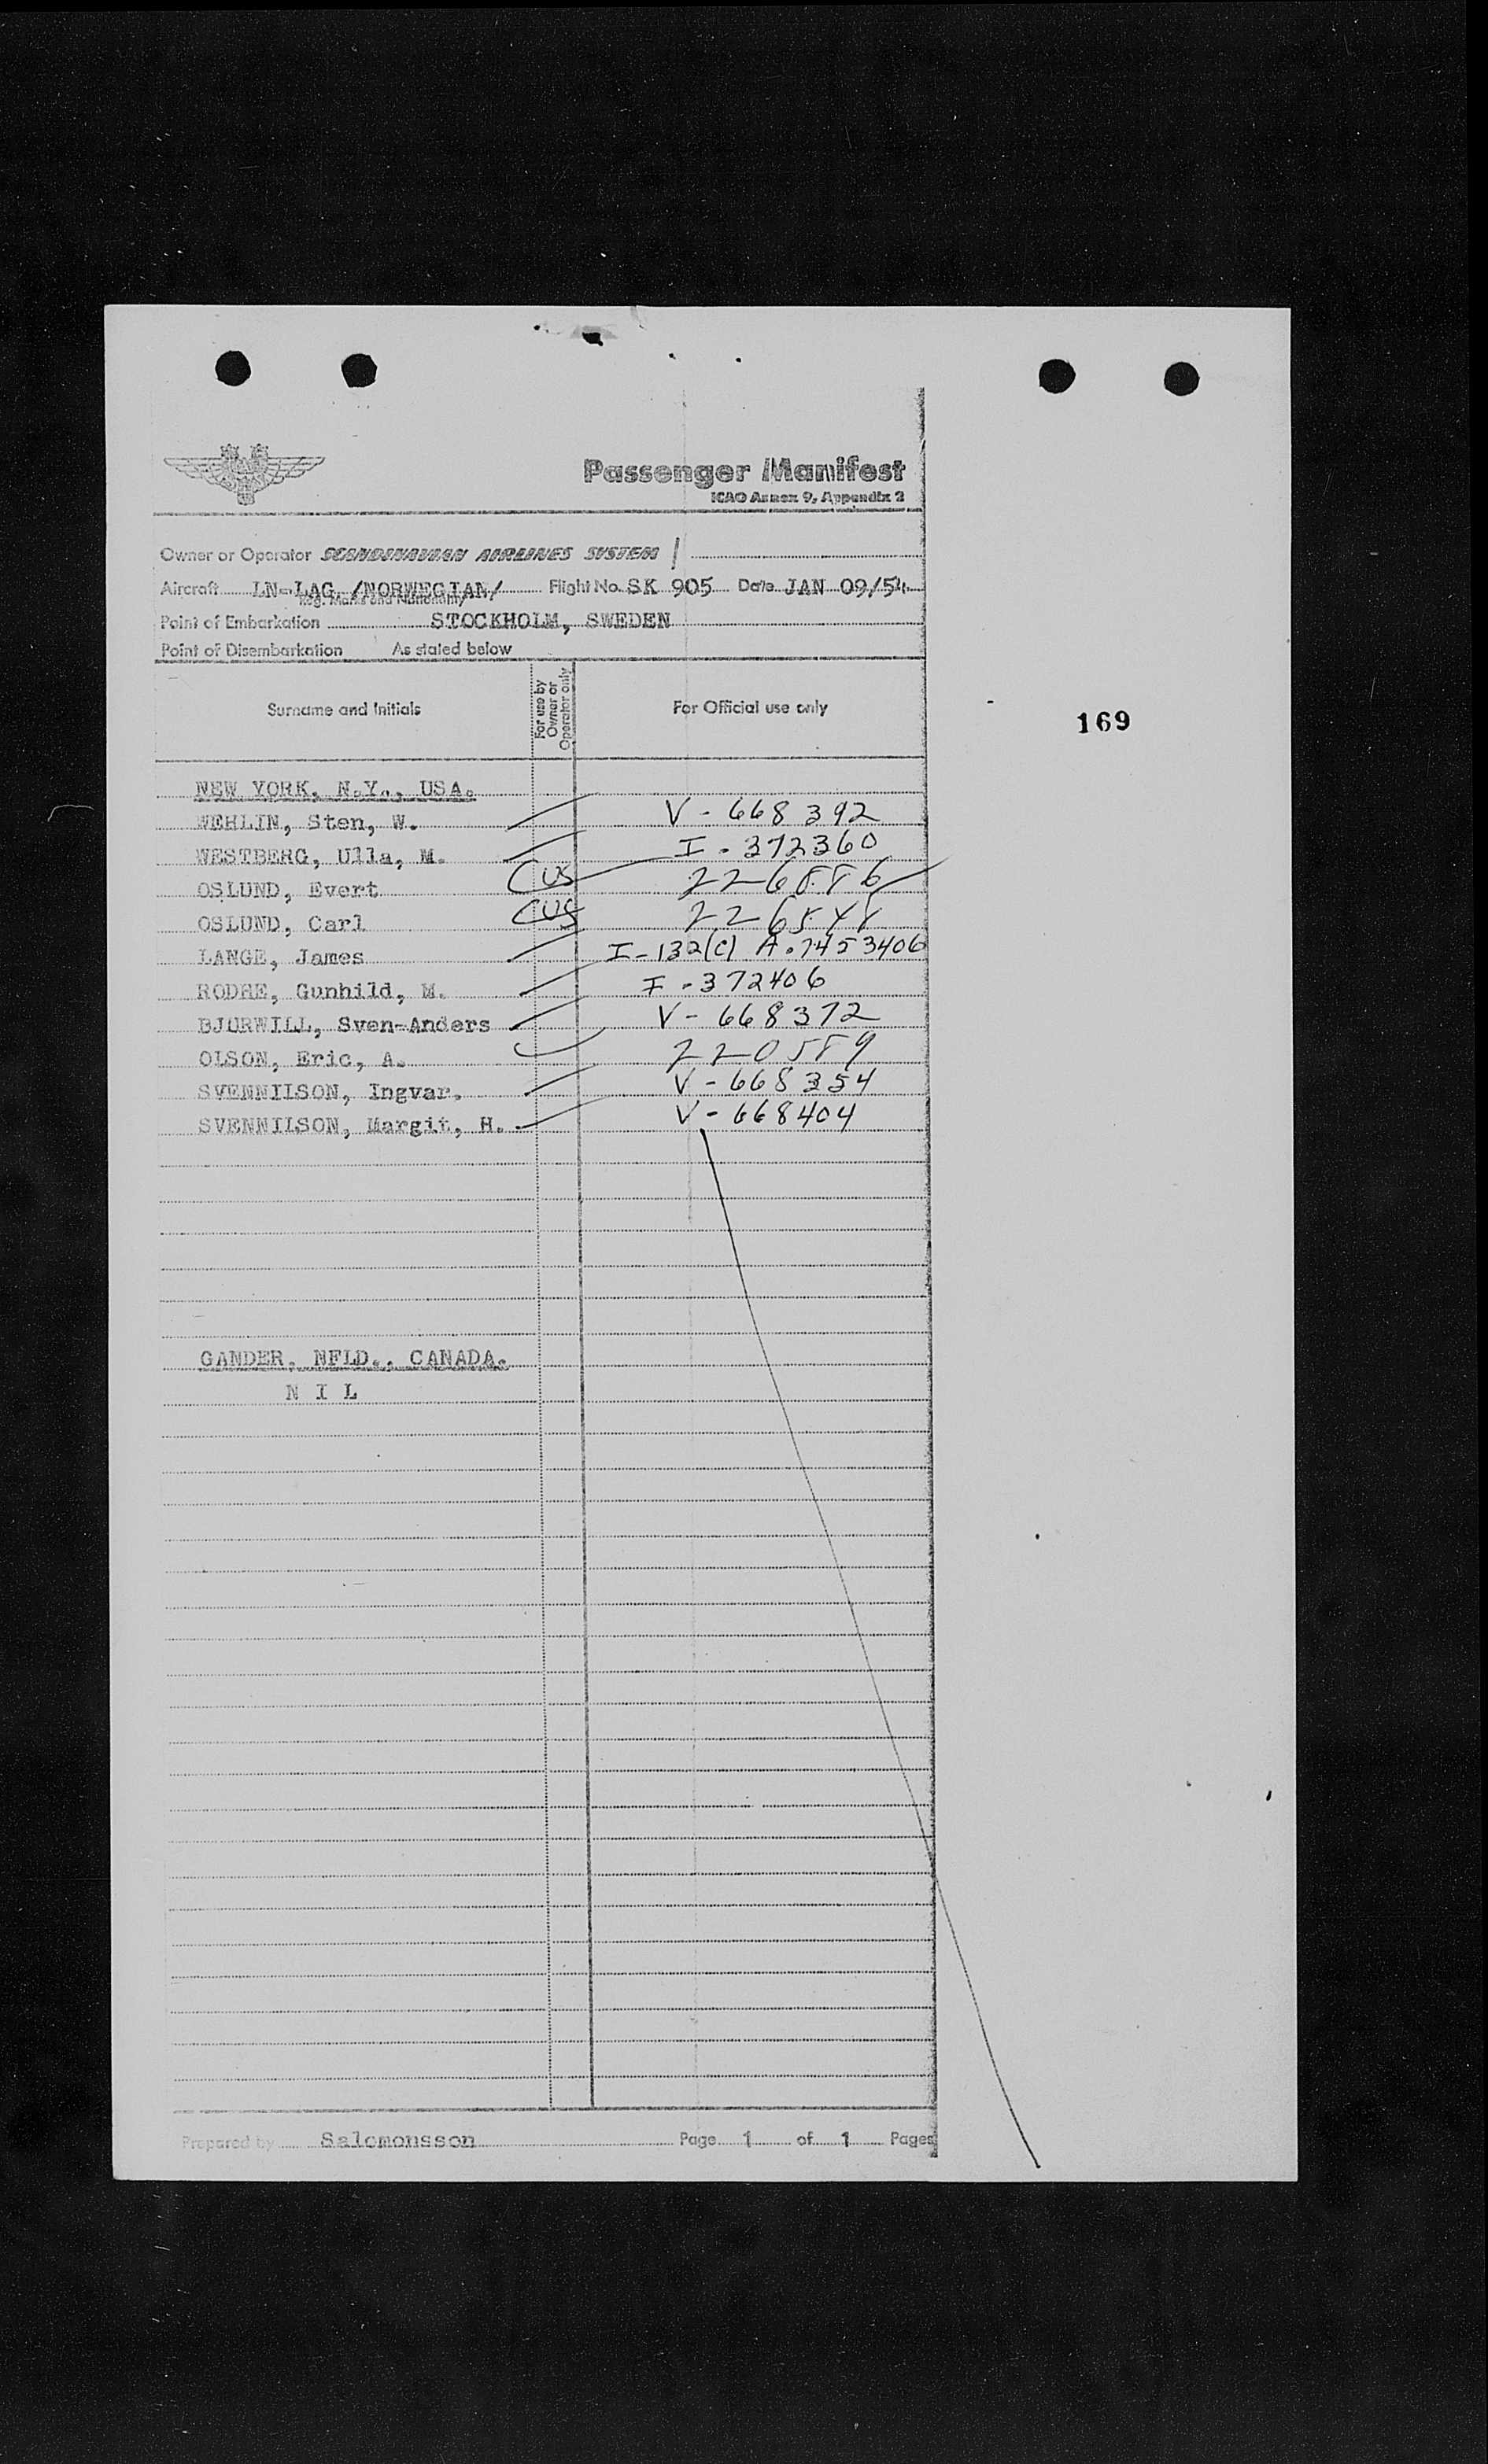 Passenger Manifest
ICAO Annex 9, Appendix 2
Owner or Operator SCANDINAVIAN AIRLINES SYSTEM
Aircraft LN-LAG, /NORWEGIAN/ Flight No. SK 905 Date JAN 09/54
Reg. Marks and Nationality
Point of Embarkation STOCKHOLM, SWEDEN
Point of Disembarkation As stated below
Surname and Initials For use by Owner or Operator only For Official use only
169
NEW YORK, N.Y., USA.
WEHLIN, Sten, W. V - 668392
WESTBERG, Ulla, M. I - 372360
OSLUND, Evert CUS
OSLUND, Carl CUS
LANGE, James I-132(C) A-7453406
RODHE, Gunhild, M. I - 372406
BJURWILL, Sven-Anders V - 668372
OLSON, Eric, A. 220589
SVENNILSON, Ingvar. V - 668354
SVENNILSON, Margit, H. V - 668404
GANDER, NFLD., CANADA.
N I L
Prepared by Salomonsson Page 1 of 1 Pages